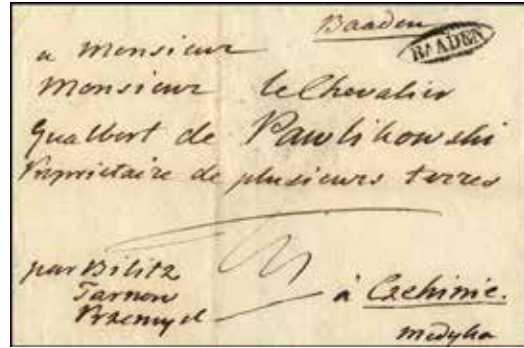 Baaden
BAADEN
a Monsieur
Monsieur le Chevalier
Gualbert de Pawlikowski
Propriétaire de plusieurs terres
par Bilitz
Tarnow
Przemysl
à Czehinie.
Medyka